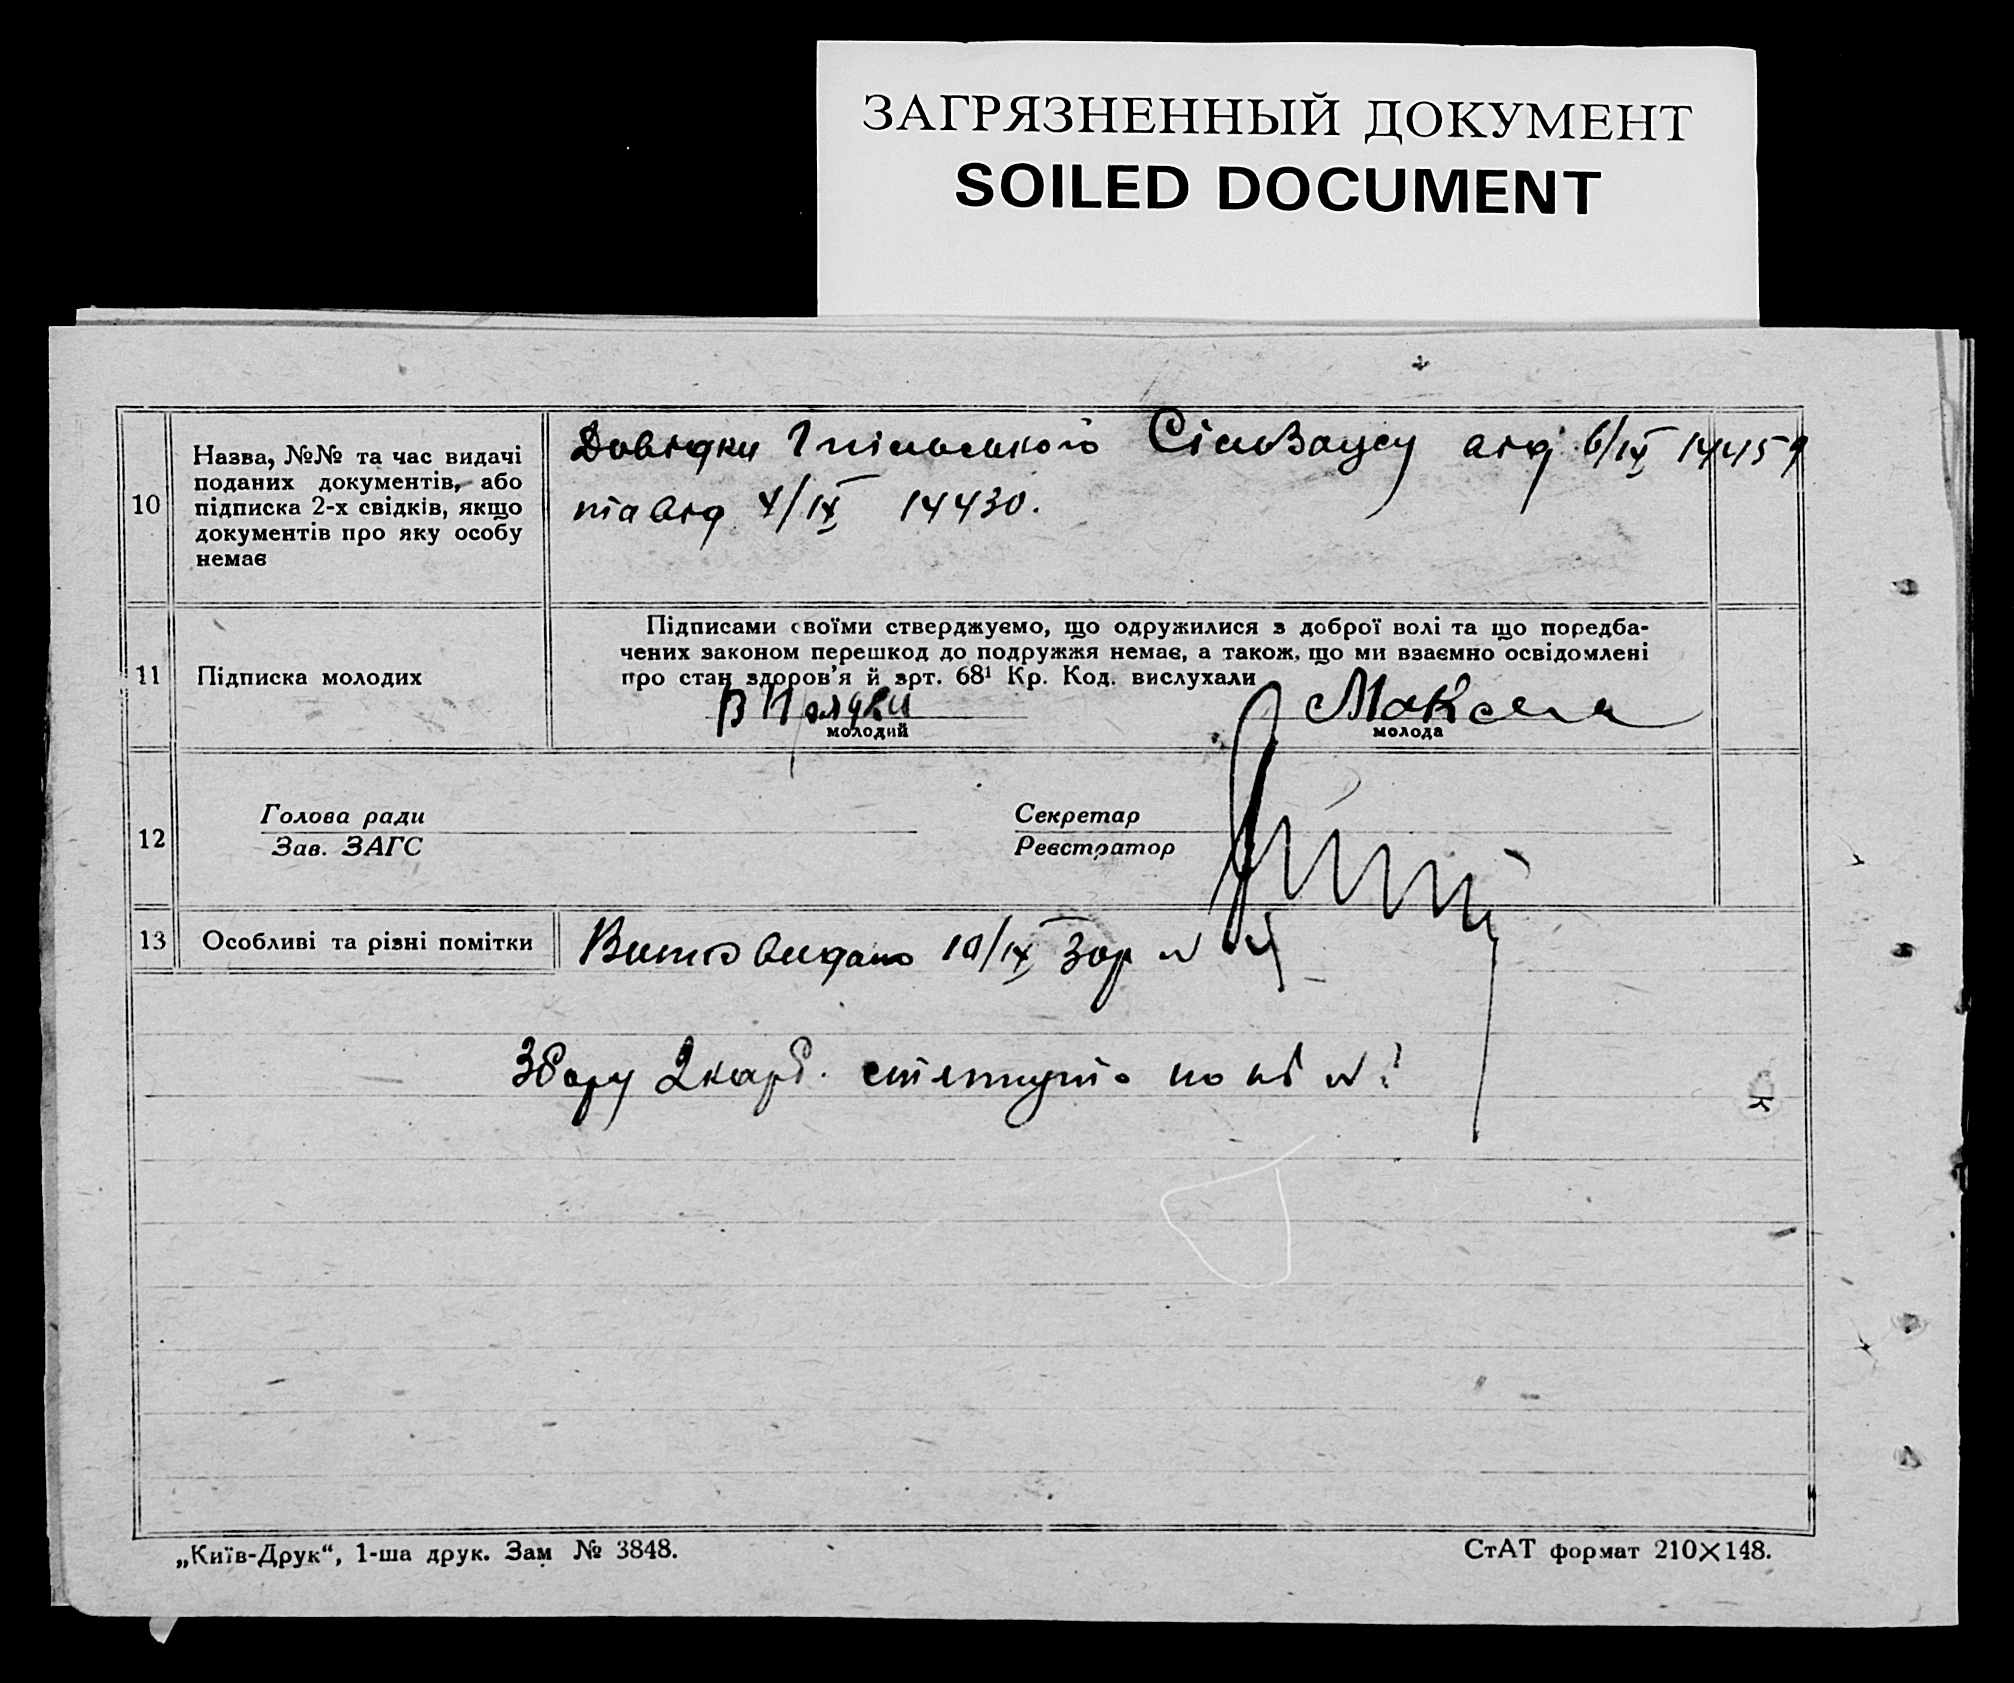 ЗАГРЯЗНЕННЫЙ ДОКУМЕНТ
SOILED DOCUMENT
10
Назва, №№ та час видачі
поданих документів, або
підписка 2-х свідків, якщо
документів про яку особу
немає
Довідки від 6/IX
та від 4/IX 14430.
11
Підписка молодих
Підписами своїми стверджуємо, що одружилися з доброї волі та що передба-
чених законом перешкод до подружжя немає, а також, що ми взаємно освідомлені
про стан здоров'я й арт. 68¹ Кр. Код. вислухали
молодий
молода
12
Голова ради
Зав. ЗАГС
Секретар
Реєстратор
13
Особливі та різні помітки
Витяг видано 10/IX 30р
Збору 2 карб. стягнуто по кв
„Київ-Друк“, 1-ша друк. Зам № 3848.
СтАТ формат 210×148.